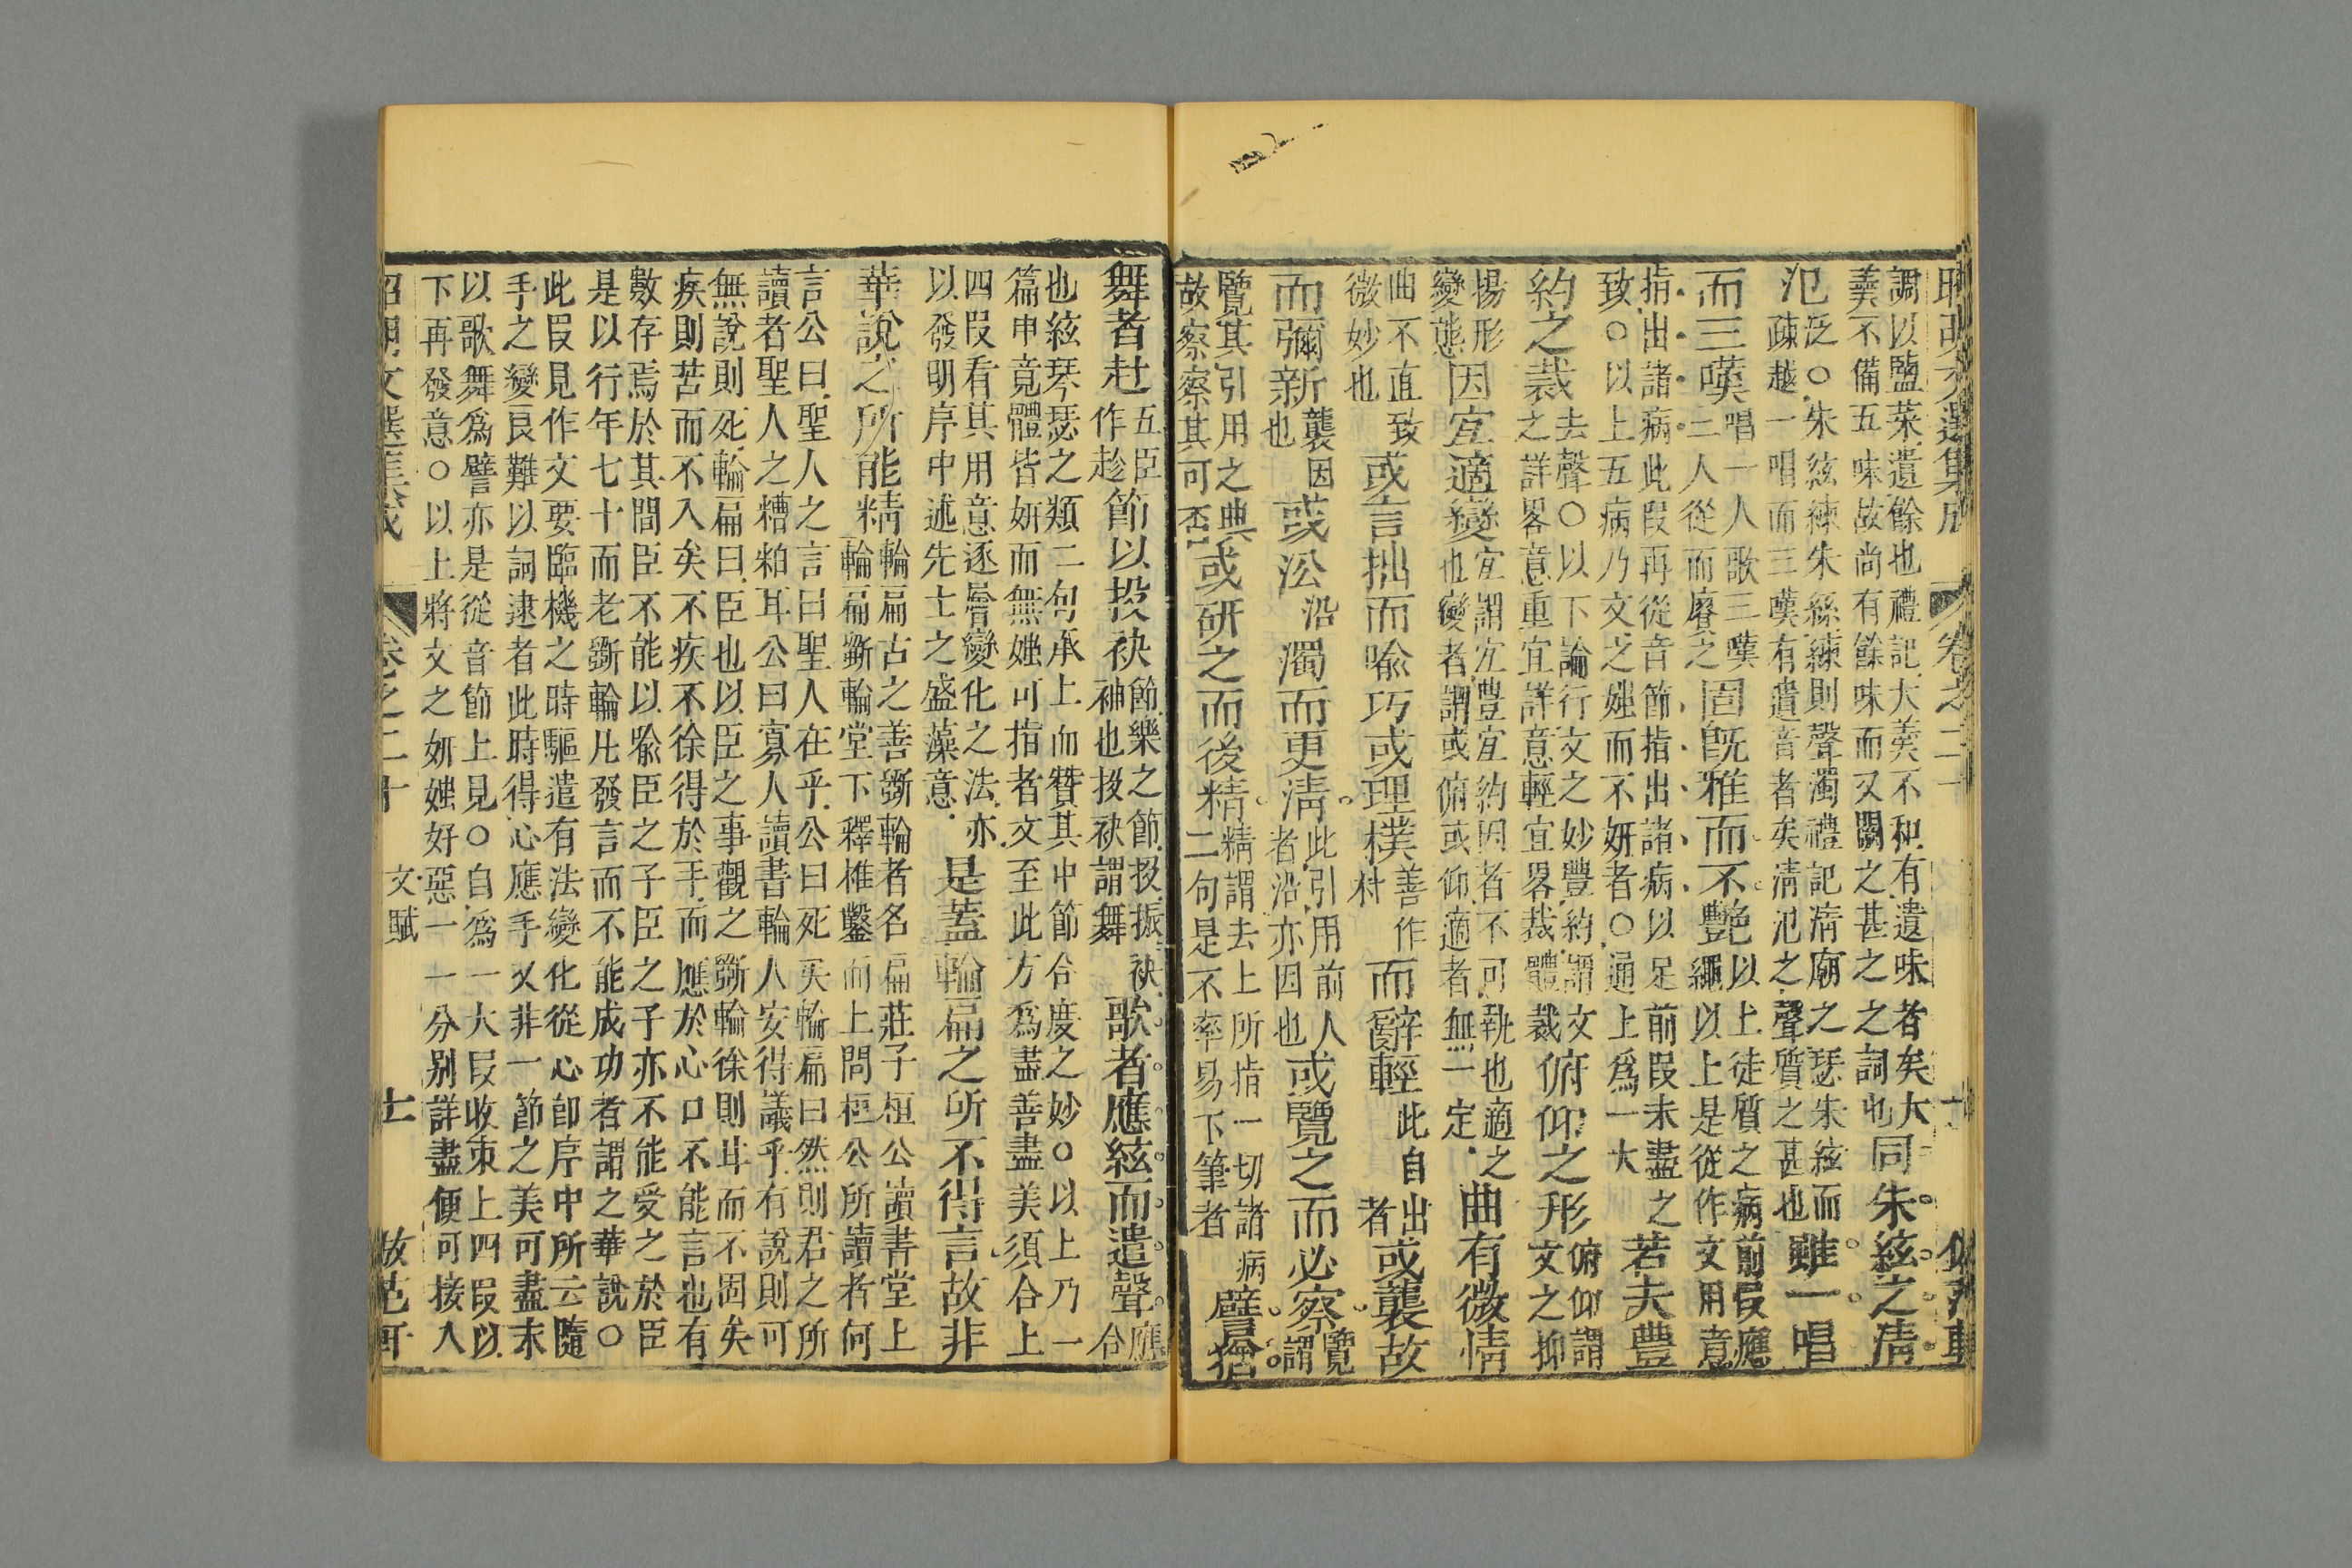 昭明文選集成　卷之二十
調以鹽菜遺餘也禮記大羹不和有遺味者矣大
羹不備五味故尚有餘味而又闕之甚之之詞也
同朱絃之清
氾
泛○朱絃練朱絲練則聲濁禮記清廟之瑟朱絃而
疎越一唱而三嘆有遺音者矣清氾之聲質之甚也
雖一唱
而三嘆
唱一人歌三嘆
三人從而賡之
固旣雅而不艷
以上徒質之病前叚應
繩以上是從作文用意
指出諸病此叚再從音節指出諸病以足前叚未盡之
致○以上五病乃文之媸而不妍者○通上爲一大
若夫豐
約之裁
去聲○以下論行文之妙豐約謂文
之詳畧意重宜詳意輕宜畧裁體裁
俯仰之形
俯仰謂
文之抑
揚形
變態
因宜適變
宜謂宜豐宜約因者不可執也適之
也變者謂或俯或仰適者無一定
曲有微情
曲不直致
微妙也
或言拙而喩巧或理樸
善作
朴
而辭輕
此自出
者
或襲故
而彌新
襲因
也
或㳂
沿
濁而更清
此引用前人
者沿亦因也
或覽之而必察
覽
謂
覽其引用之典
故察察其可否
或研之而後精
精謂去上所指一切諸病
二句是不率易下筆者
譬猶
舞者赴
五臣
作趁
節以投袂
節樂之節投振袂
袖也投袂謂舞
歌者應絃而遣聲
應
合
也絃琴瑟之類二句承上而贊其中節合度之妙○以上乃一
篇申竟體皆妍而無媸可指者文至此方爲盡善盡美須合上
四叚看其用意逐層變化之法亦
以發明序中述先士之盛藻意
是蓋輪扁之所不得言故非
華說之所能精
輪扁古之善斲輪者名扁莊子桓公讀書堂上
輪扁斲輪堂下釋椎鑿而上問桓公所讀者何
言公曰聖人之言曰聖人在乎公曰死矣輪扁曰然則君之所
讀者聖人之糟粕耳公曰寡人讀書輪人安得議乎有說則可
無說則死輪扁曰臣也以臣之事觀之斲輪徐則甘而不固矣
疾則苦而不入矣不疾不徐得於手而應於心口不能言也有
數存焉於其間臣不能以喩臣之子臣之子亦不能受之於臣
是以行年七十而老斲輪凡發言而不能成功者謂之華說○
此叚見作文要臨機之時驅遣有法變化從心卽序中所云隨
手之變良難以詞逮者此時得心應手又非一節之美可盡末
以歌舞爲譬亦是從音節上見○自爲一大叚收束上四叚以
下再發意○以上將文之妍媸好惡一一分别詳盡便可接入
昭明文選集成　卷之二十　文賦　十一